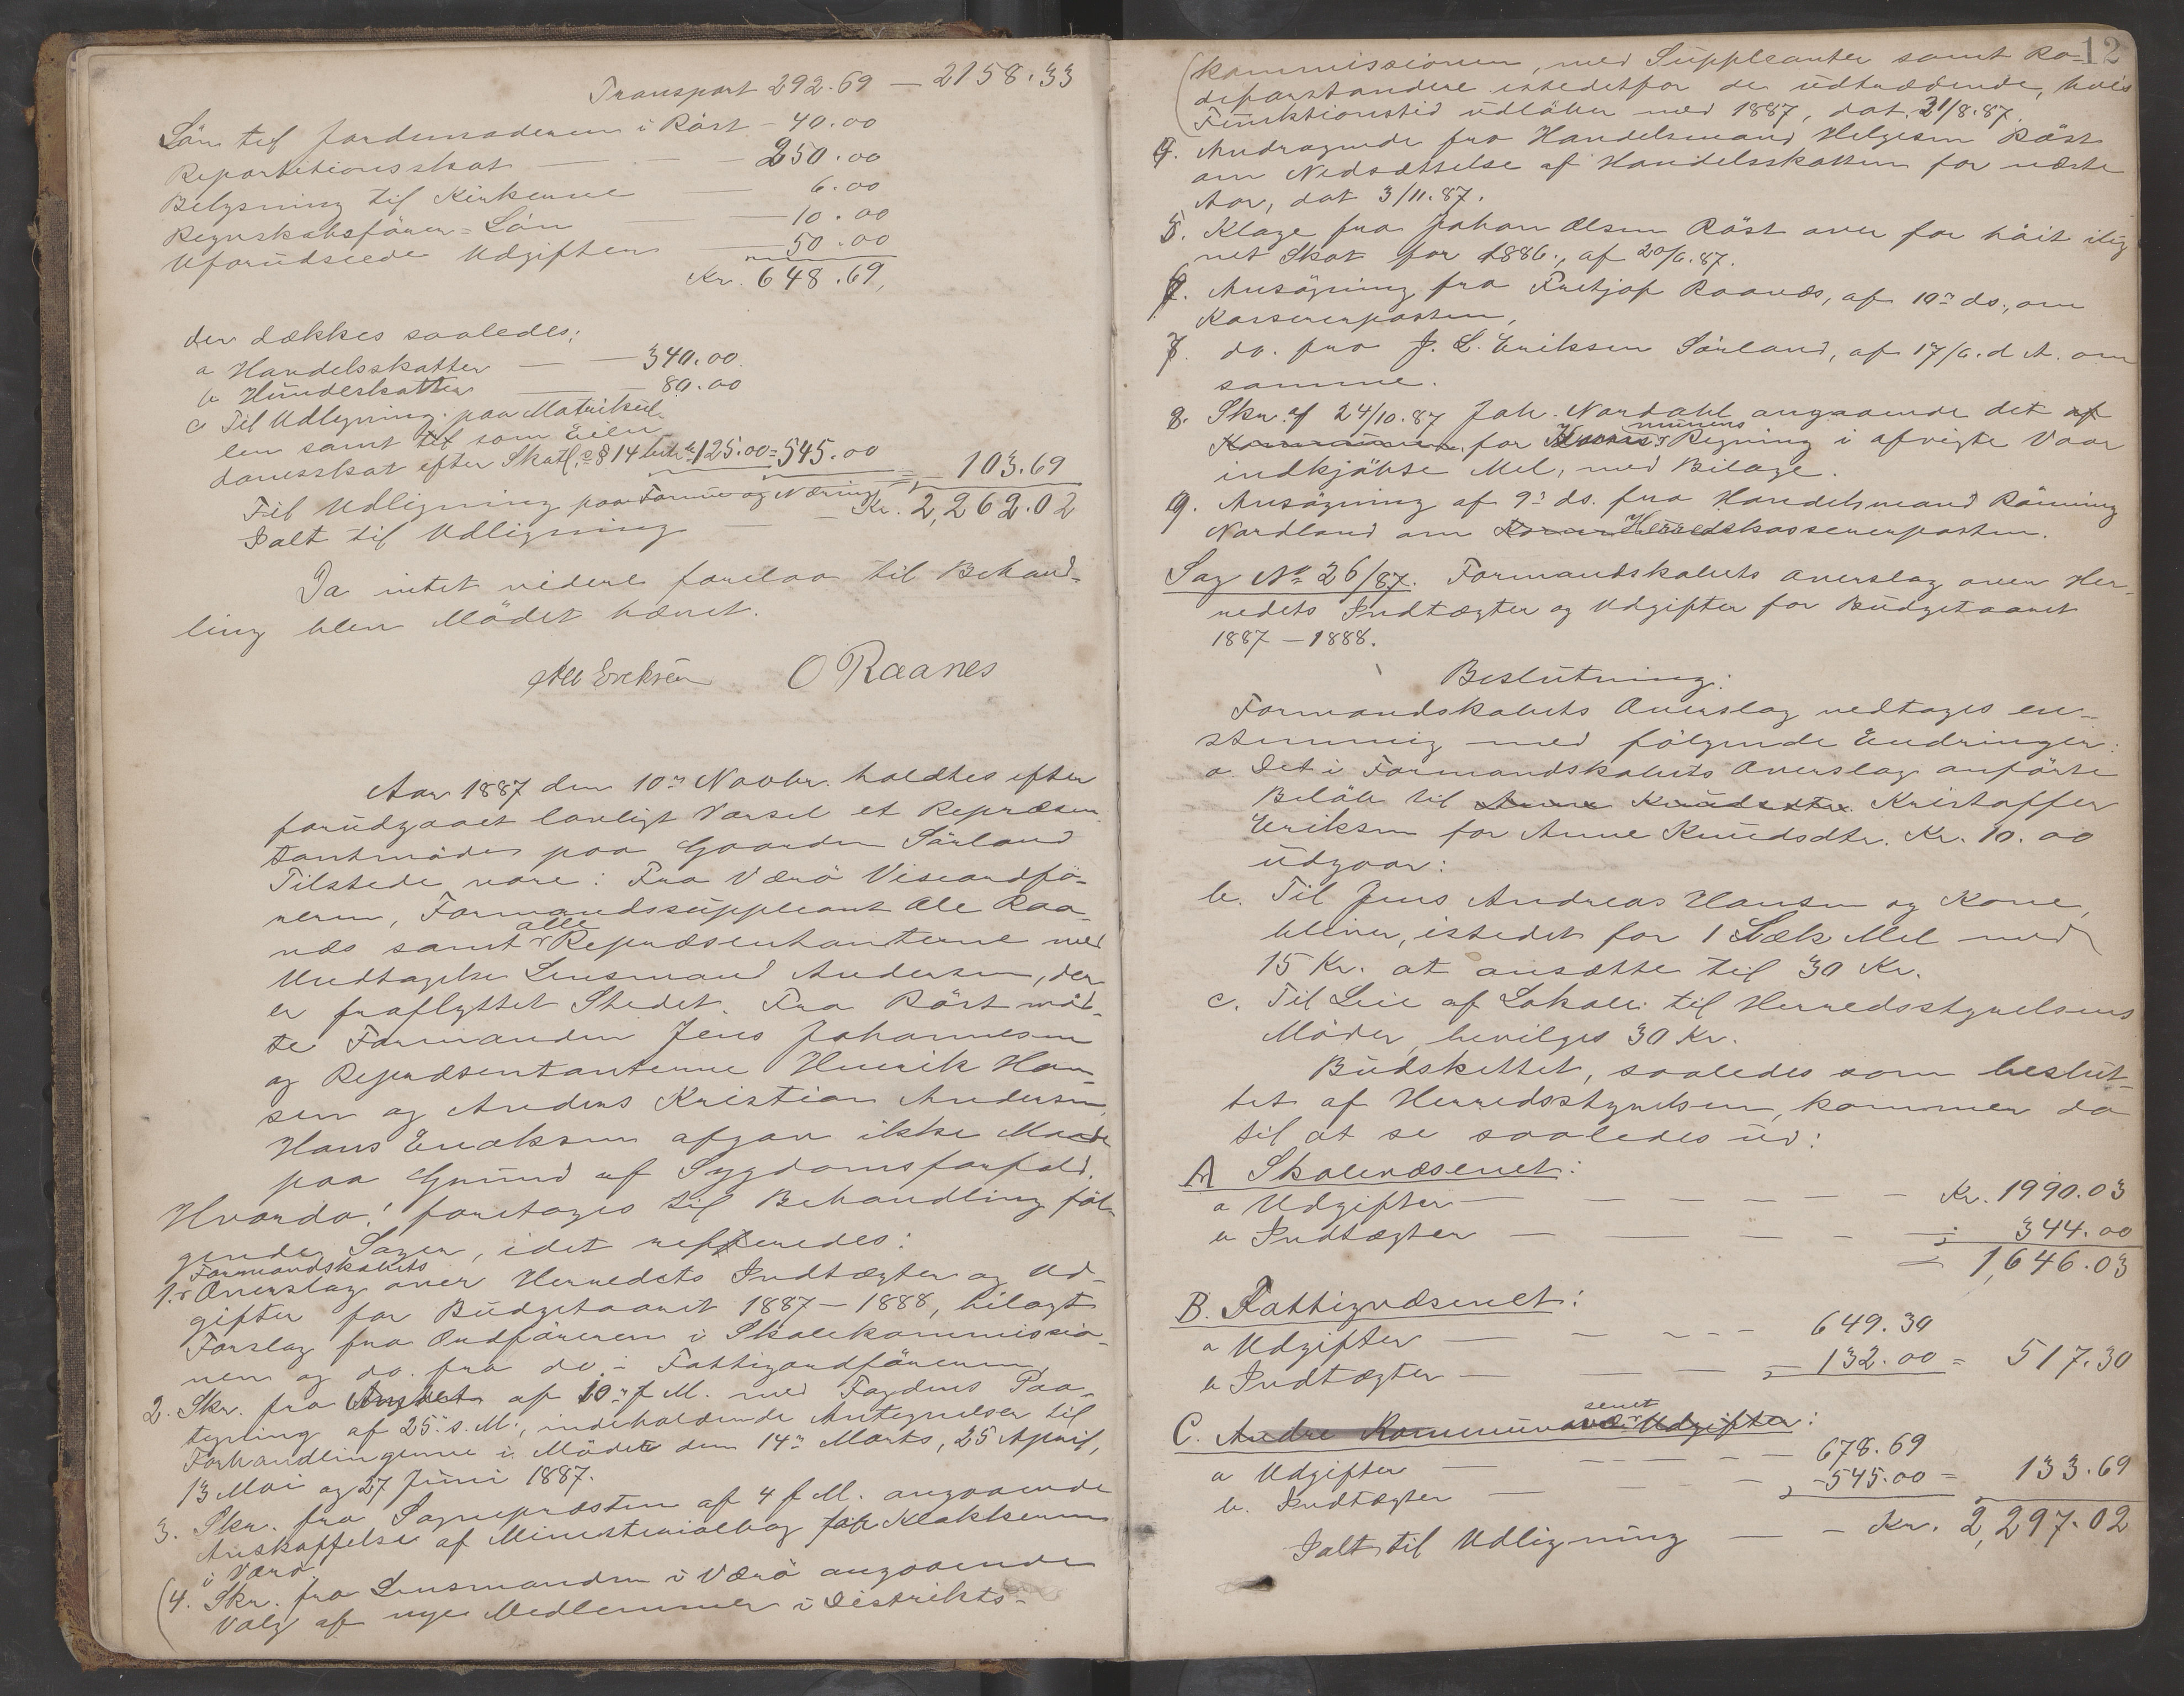 Transport 292.69 — 2158.33
Løn til Jordemoderen i Røst - 40.00
Repartitionsskat — — 250.00
Belysning til Kirkerne — 6.00
Regnskabsfører-Løn — 10.00
Uforudseede Udgifter — 50.00
Kr. 648.69,
der dækkes saaledes:
a Handelsskatter — 340.00
b Hundeskatter — 80.00
c Til Udligning paa Matrikul-
len samt som Eien-
domsskat efter Skatl. § 14 125.00 = 545.00 = 103.69
Til Udligning paa Formue og Næring
Ialt til Udligning — Kr. 2,262.02
Da intet videre forelaa til Behand-
ling blev Mödet hævet.
O Raanes
Aar 1887 den 10de Novbr. holdtes efter
forudgaaet lovligt Varsel et Repræsen-
tantmöde paa Gaarden Sörland
Tilstede vare: Fra Værö Viseordfö-
reren, Formandssuppleant Ole Raa-
næs samt alle Repræsentanterne med
Undtagelse Lensmand Andersen, der
er fraflyttet Stedet. Fra Röst möd-
te Formanden Jens Johannesen
og Repræsentanterne Henrik Han-
sen og Anders Kristian Andersen,
Hans Enoksen afgav ikke Møde
paa Grund af Sygdomsforfald.
Hvorda! foretoges til Behandling föl-
gende Sager, idet refereredes:
1. Formandskabets Overslag over Herredets Indtægter og Ud-
gifter for Budgetaaret 1887-1888, bilagt
Forslag fra Ordföreren i Skolekommissio-
nen og do. fra do. i Fattigordföreren
2. Skr. fra Amtet af 10de f M. med Fogdens Paa-
tegning af 25. s. M., indeholdende Antegnelser til
Forhandlingerne i Möde den 14de Marts, 25 April,
13 Mai og 27 Juni 1887.
3. Skr. fra Sognepræsten af 4 f M. angaaende
Anskaffelse af Ministerialbog for Klokkeren
i Værö.
(4. Skr. fra Lensmanden i Værö angaaende
Valg af nye Medlemmer i Distrikts-
12
(kommissionen, med Suppleanter samt Ro-
deforstandere istedetfor de udtrædende, hvis
Funktionstid udlöber med 1887, dat. 31/8.87.
4. Andragende fra Handelsmand Helgesen Röst
om Nedsættelse af Handelsskatten for næste
Aar, dat 3/11.87.
5. Klage fra Johan Olsen Röst over for höit ilig-
net Skat for 1886., af 20/6.87.
6. Ansögning fra Fritjof Raanæs, af 10de ds., om
Kassererposten,
7. do. fra J. L. Eriksen Sörland, af 17/6. d A. om
samme.
8. Skr. af 24/10.87 Joh. Nordahl angaaende det af
Kommunen for Kommunens Regning i afvigte Vaar
indkjöbte Mel, med Bilage.
9. Ansögning af 9de ds. fra Handelsmand Rönning
Nordland om Herredskassererposten.
Sag No 26/87. Formandskabets Overslag over Her-
redets Indtægter og Udgifter for Budgetaaret
1887 - 1888.
Beslutning:
Formandskabets Overslag vedtages en-
stemmig med fölgende Endringer:
a. Det i Formandskabets Overslag anförte
Belöb til Anne Knudsdtr. Kristoffer
Eriksen for Anne Knudsdtr. Kr. 10.00
udgaar:
b. Til Jens Andreas Hansen og Kone,
bliver, istedet for 1 Sæk Mel med
15 Kr. at ansætte til 30 Kr.
c. Til Leie af Lokale til Herredsstyrelsens
Möder, bevilges 30 Kr.
Budskettet, saaledes som beslut-
tet af Herredsstyrelsen, kommer da
til at se saaledes ud:
A Skolevæsenet:
a Udgifter — Kr. 1990.03
b Indtægter — 344.00
= 1,646.03
B. Fattigvæsenet:
a Udgifter — 649.30
b Indtægter — 132.00 = 517.30
C. Andre Kommunevæsenet Udgifter:
a Udgifter — 678.69
b. Indtægter — 545.00 = 133.69
Ialt til Udligning — Kr. 2,297.02